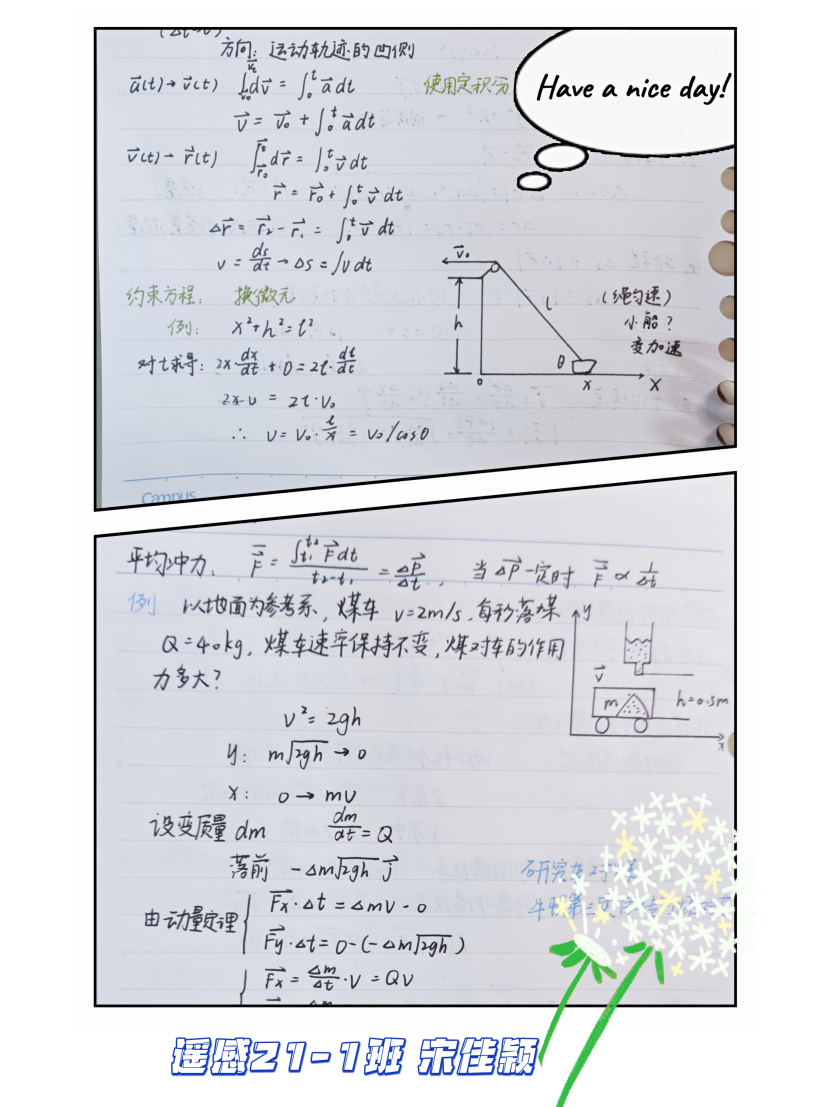 (Δt→0)
方向：运动轨迹的凹侧
a⃗(t)→v⃗(t) ∫_{v⃗₀}^{v⃗t} dv⃗ = ∫₀ᵗ a⃗ dt 使用定积分
Have a nice day!
v⃗ = v⃗₀ + ∫₀ᵗ a⃗ dt
v⃗(t) → r⃗(t) ∫_{r⃗₀}^{r⃗t} dr⃗ = ∫₀ᵗ v⃗ dt
r⃗ = r⃗₀ + ∫₀ᵗ v⃗ dt
Δr⃗ = r⃗₂ - r⃗₁ = ∫₀ᵗ v⃗ dt
v = ds/dt → Δs = ∫v dt
约束方程： 换微元
例： x²+h²=l²
对t求导： 2x·dx/dt + 0 = 2l·dl/dt
2x·v = 2l·v₀
∴ v = v₀·l/x = v₀/cosθ
v⃗₀
h
l
θ
0
x
X
(绳匀速)
小船？
变加速
Campus
平均冲力： F⃗ = ∫_{t₁}^{t₂} F⃗dt / t₂-t₁ = ΔP⃗/Δt , 当ΔP⃗一定时 F⃗ ∝ 1/Δt
例 以地面为参考系，煤车 v=2m/s，每秒落煤
Q=40kg，煤车速率保持不变，煤对车的作用
力多大？
y
v⃗
m
h=0.5m
x
v²=2gh
y: m√2gh → 0
x: 0 → mv
设变质量dm dm/dt = Q
落前 -Δm√2gh j⃗
由动量定理 { F⃗x·Δt = Δmv - 0
F⃗y·Δt = 0-(-Δm√2gh)
{ F⃗x = Δm/Δt·v = Qv
遥感21-1班 宋佳颖